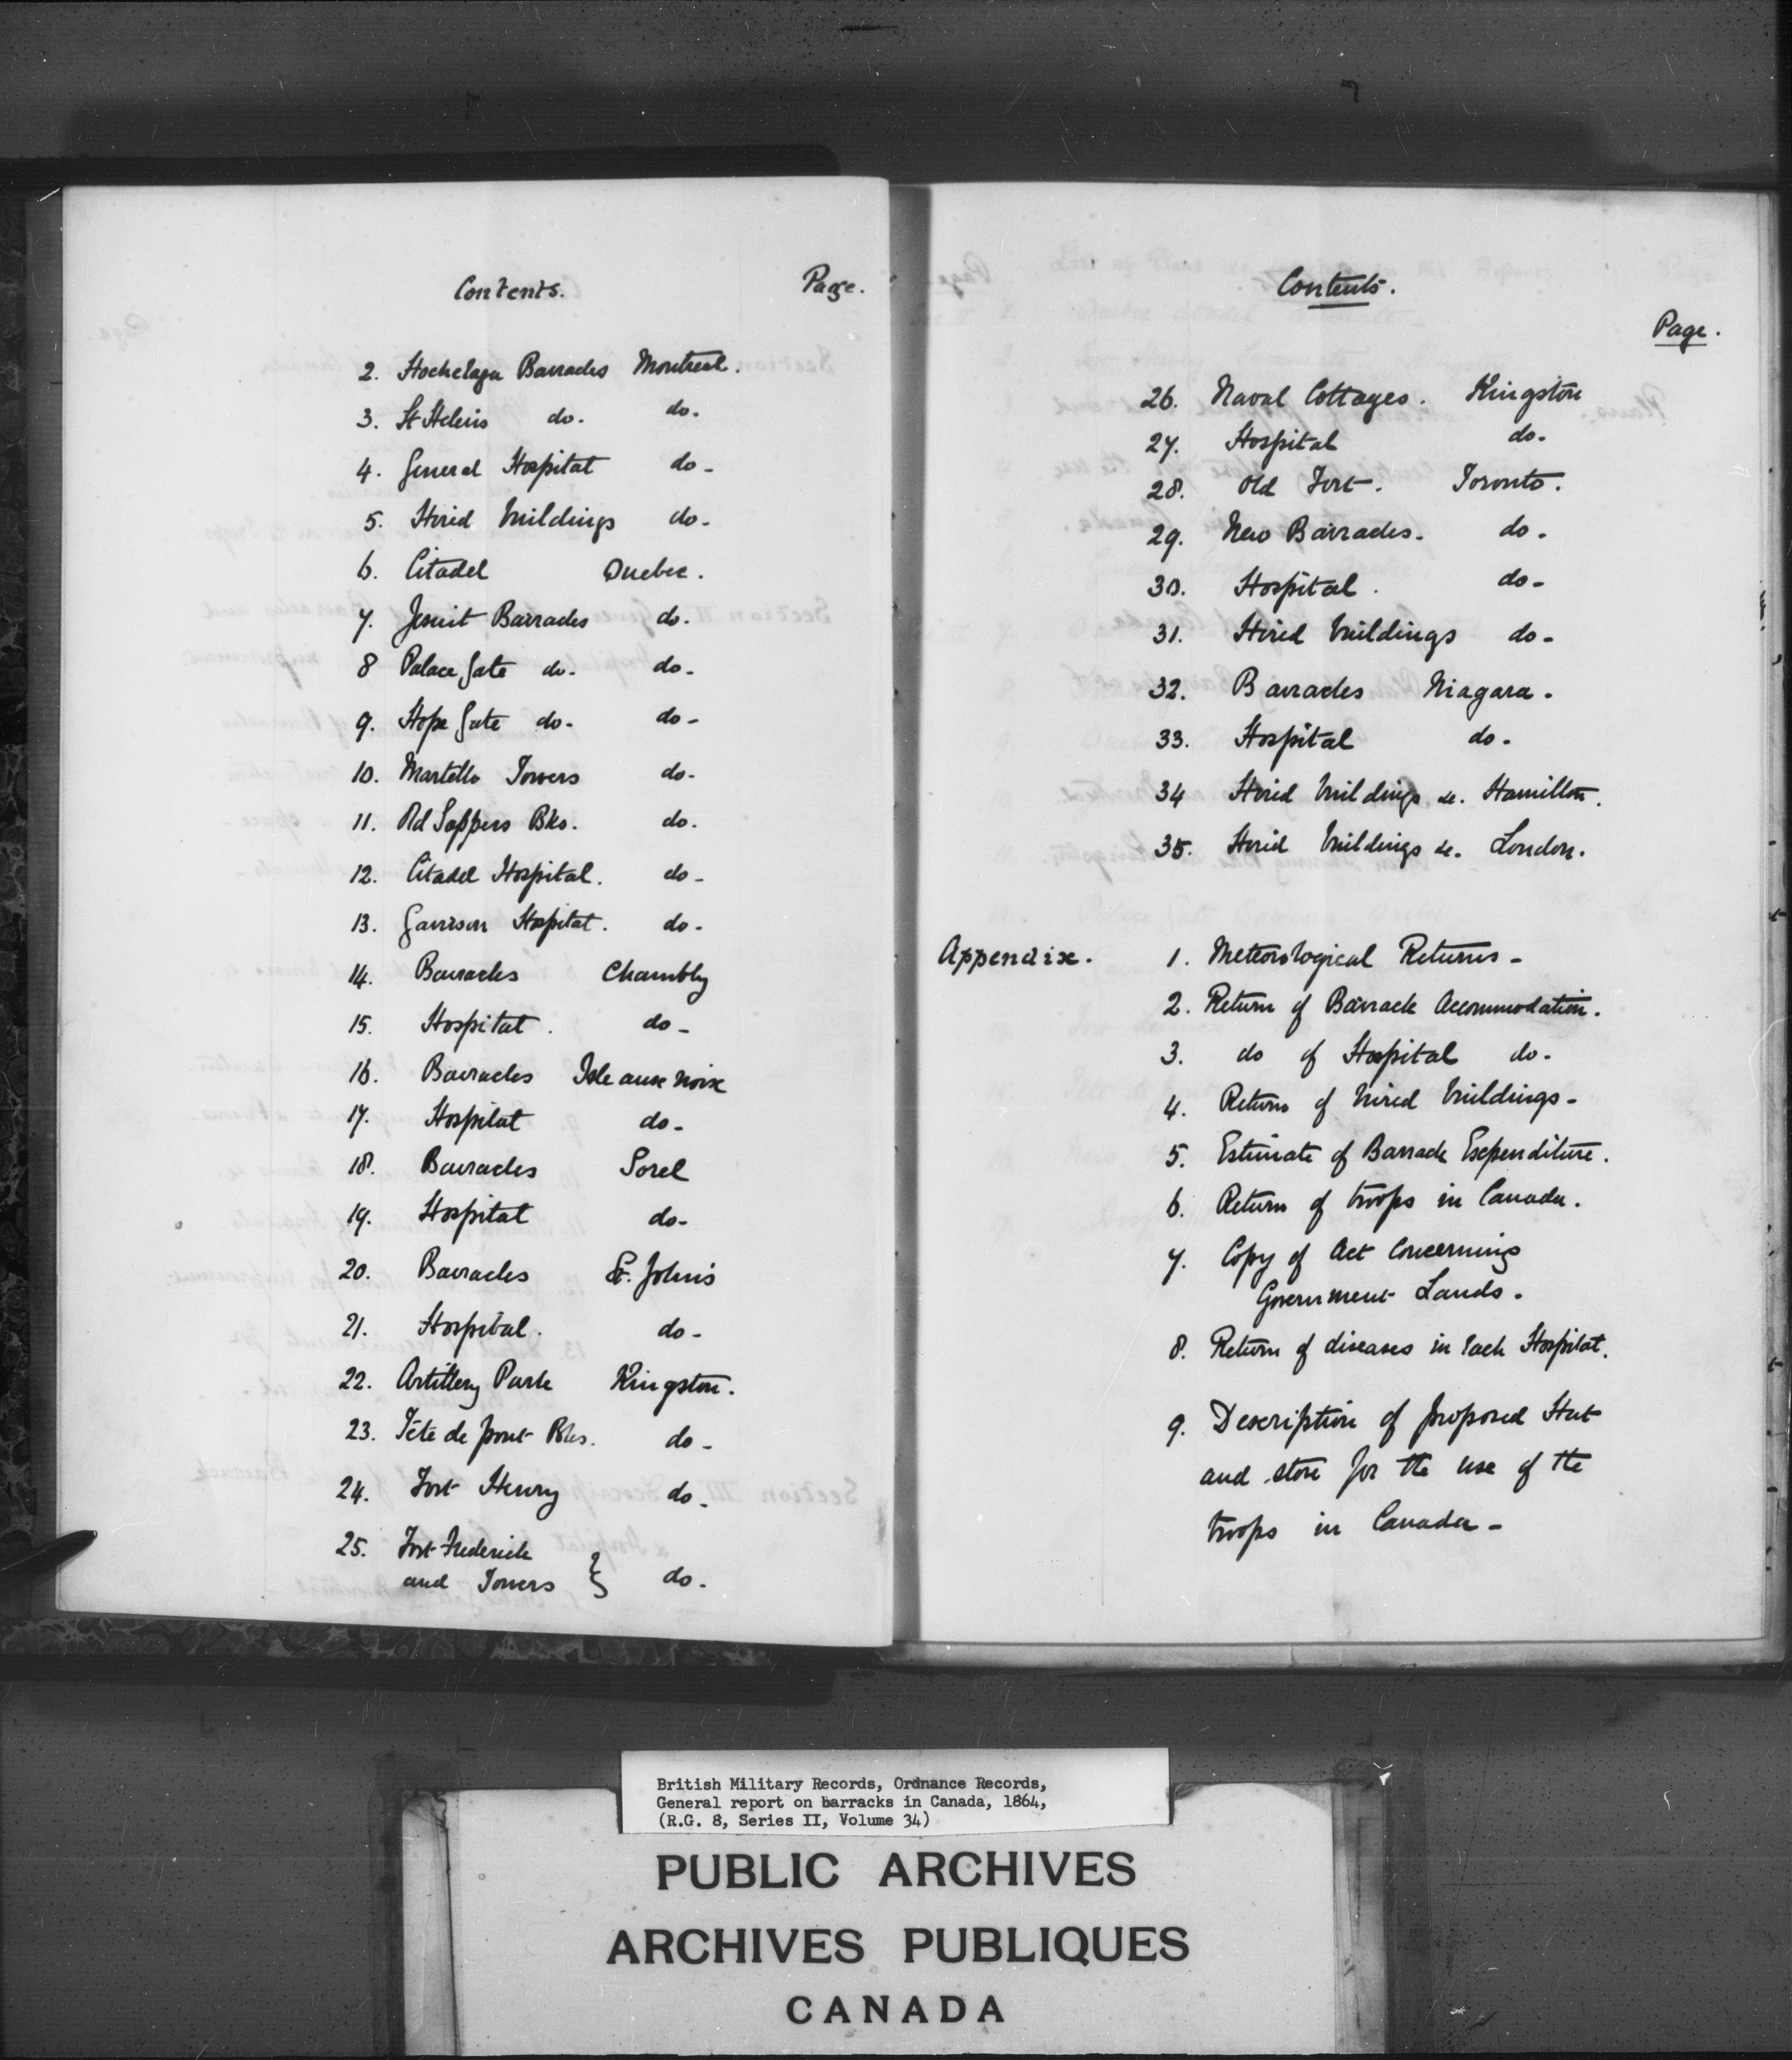 Contents. Page.
2. Hochelaga Barracks Montreal.
3. St Helens do. do.
4. General Hospital do-
5. Hired buildings do-
6. Citadel Quebec.
7. Jesuit Barracks do.
8 Palace Gate do. do-
9. Hope Gate do- do-
10. Martello Towers do-
11. Old Sappers Bks. do.
12. Citadel Hospital. do-
13. Garrison Hospital. do-
14. Barracks Chambly
15. Hospital. do-
16. Barracks Isle aux Noix
17. Hospital do-
18. Barracks Sorel
19. Hospital do-
20. Barracks St. John's
21. Hospital. do-
22. Artillery Park Kingston.
23. Tête de pont Bks. do-
24. Fort Henry do-
25. Fort Frederick
and Towers } do.
Contents.
Page.
26. Naval Cottages. Kingston
27. Hospital do-
28. Old Fort. Toronto.
29. New Barracks. do-
30. Hospital. do-
31. Hired buildings do-
32. Barracks Niagara.
33. Hospital do-
34 Hired buildings &c. Hamilton.
35. Hired buildings &c. London.
Appendix. 1. Meteorological Returns-
2. Return of Barrack Accommodation.
3. do of Hospital do-
4. Return of hired buildings-
5. Estimate of Barrack Expenditure.
6. Return of troops in Canada.
7. Copy of Act Concerning
Government Lands.
8. Return of diseases in each Hospital.
9. Description of proposed Hut
and store for the use of the
troops in Canada-
British Military Records, Ordnance Records,
General report on barracks in Canada, 1864,
(R.G. 8, Series II, Volume 34)
PUBLIC ARCHIVES
ARCHIVES PUBLIQUES
CANADA